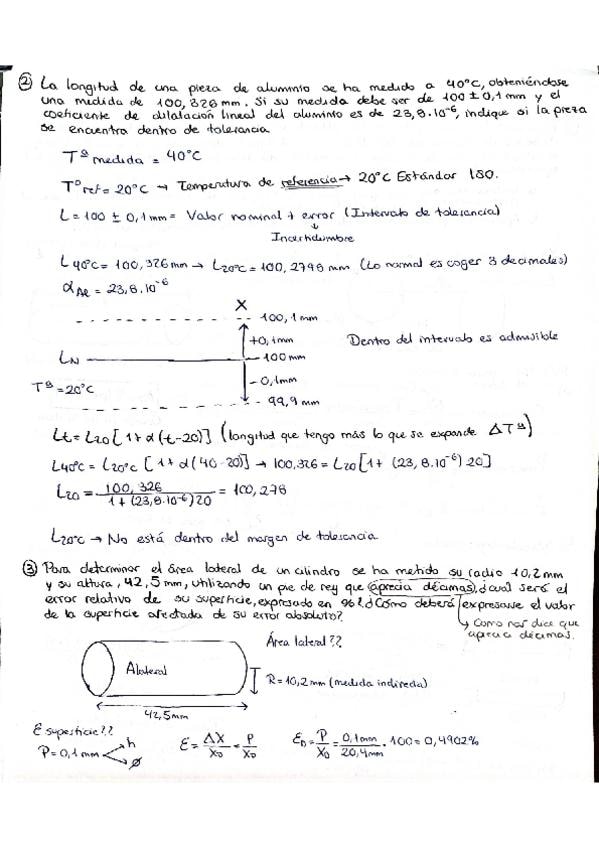 ② La longitud de una pieza de aluminio se ha medido a 40°C, obteniéndose
una medida de 100,326 mm. Si su medida debe ser de 100 ± 0,1 mm y el
coeficiente de dilatación lineal del aluminio es de 23,8·10⁻⁶, indique si la pieza
se encuentra dentro de tolerancia
Tª medida = 40°C
Tº ref = 20°C → Temperatura de referencia → 20°C Estándar ISO.
L = 100 ± 0,1 mm = Valor nominal + error (Intervalo de tolerancia)
↓
Incertidumbre
L40°C = 100,326 mm → L20°C = 100,2798 mm (Lo normal es coger 3 decimales)
αAl = 23,8·10⁻⁶
X
100,1 mm
+0,1mm
Dentro del intervalo es admisible
LN
100 mm
Tª = 20°C
-0,1mm
99,9 mm
Lt = L20 [1 + α (t-20)] (longitud que tengo más lo que se expande ΔTª)
L40°C = L20°C [1 + α (40-20)] → 100,326 = L20 [1 + (23,8·10⁻⁶)·20]
L20 = 100,326 / 1 + (23,8·10⁻⁶)20 = 100,278
L20°C → No está dentro del margen de tolerancia
③ Para determinar el área lateral de un cilindro se ha metido su radio 10,2 mm
y su altura, 42,5 mm, utilizando un pie de rey que aprecia décimas, ¿cual será el
error relativo de su superficie, expresado en %? ¿Cómo deberá expresarse el valor
de la superficie afectada de su error absoluto?
↳ Como nos dice que
aprecia décimas.
Área lateral??
Alateral
R = 10,2 mm (medida indirecta)
42,5mm
E superficie??
P = 0,1 mm
h
ø
E = ΔX / X0 = P / X0
ED = P / X0 = 0,1mm / 20,4mm · 100 = 0,4902%